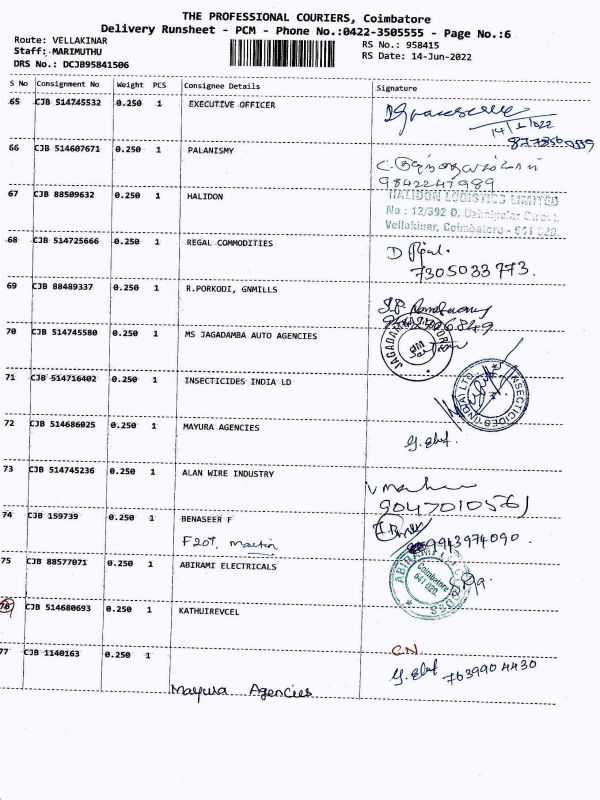 THE PROFESSIONAL COURIERS, Coimbatore
Delivery Runsheet - PCM - Phone No.:0422-3505555 - Page No.:6
Route: VELLAKINAR
RS No.: 958415
Staff: MARIMUTHU
RS Date: 14-Jun-2022
DRS No.: DCJB95841506
S No Consignment No Weight PCS Consignee Details Signature
65 CJB 514745532 0.250 1 EXECUTIVE OFFICER
66 CJB 514607671 0.250 1 PALANISMY
9842247989
67 CJB 88509632 0.250 1 HALIDON
HALIDON LOGISTICS LIMITED
No : 12/392 D,
Vellakinar, Coimbatore - 641 029.
68 CJB 514725666 0.250 1 REGAL COMMODITIES
7305033773.
69 CJB 88489337 0.250 1 R.PORKODI, GNMILLS
70 CJB 514745580 0.250 1 MS JAGADAMBA AUTO AGENCIES
71 CJB 514716402 0.250 1 INSECTICIDES INDIA LD
INSECTICIDES (INDIA) LTD
72 CJB 514686025 0.250 1 MAYURA AGENCIES
73 CJB 514745236 0.250 1 ALAN WIRE INDUSTRY
9047010561
74 CJB 159739 0.250 1 BENASEER F
9943974090.
75 CJB 88577071 0.250 1 ABIRAMI ELECTRICALS
Coimbatore
641 029
76 CJB 514680693 0.250 1 KATHUIREVCEL
CN
77 CJB 1140163 0.250 1
7639904430
Mayura Agencies